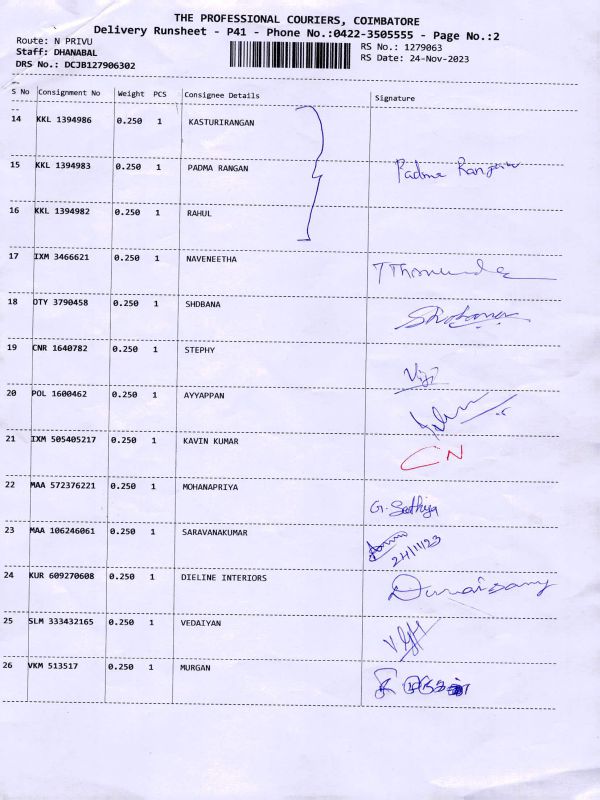 THE PROFESSIONAL COURIERS, COIMBATORE
Delivery Runsheet - P41 - Phone No.:0422-3505555 - Page No.:2
Route: N PRIVU
RS No.: 1279063
Staff: DHANABAL
RS Date: 24-Nov-2023
DRS No.: DCJB127906302
S No Consignment No Weight PCS Consignee Details Signature
14 KKL 1394986 0.250 1 KASTURIRANGAN
15 KKL 1394983 0.250 1 PADMA RANGAN Padma Rangan
16 KKL 1394982 0.250 1 RAHUL
17 IXM 3466621 0.250 1 NAVENEETHA
18 OTY 3790458 0.250 1 SHDBANA Shobana
19 CNR 1640782 0.250 1 STEPHY Viji
20 POL 1600462 0.250 1 AYYAPPAN
21 IXM 505405217 0.250 1 KAVIN KUMAR CN
22 MAA 572376221 0.250 1 MOHANAPRIYA G. Sathiya
23 MAA 106246061 0.250 1 SARAVANAKUMAR 24/11/23
24 KUR 609270608 0.250 1 DIELINE INTERIORS Duraisamy
25 SLM 333432165 0.250 1 VEDAIYAN
26 VKM 513517 0.250 1 MURGAN